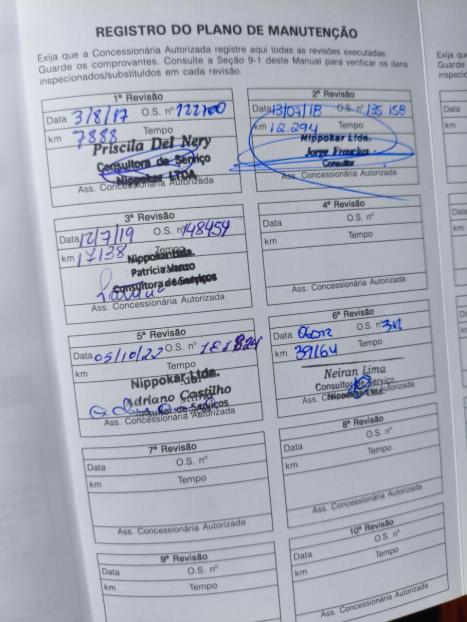 REGISTRO DO PLANO DE MANUTENÇÃO
Exija que a Concessionária Autorizada registre aqui todas as revisões executadas.
Guarde os comprovantes. Consulte a Seção 9-1 deste Manual para verificar os itens
inspecionados/substituídos em cada revisão.
1ª Revisão
Data 3/8/17 O.S. nº 122100
km 7888 Tempo
Priscila Del Nery
Consultora de Serviço
Nippokar LTDA
Ass. Concessionária Autorizada
2ª Revisão
Data 13/07/18 O.S. nº 135.158
km 12.294 Tempo
Nippokar Ltda.
Jorge
Consultor
Ass. Concessionária Autorizada
3ª Revisão
Data 12/7/19 O.S. nº 148454
km 17138 Tempo
Nippokar Ltda.
Patrícia Vanzo
Consultora de Serviços
Ass. Concessionária Autorizada
4ª Revisão
Data O.S. nº
km Tempo
Ass. Concessionária Autorizada
5ª Revisão
Data 05/10/22 O.S. nº
km Tempo
Nippokar Ltda.
Adriano Castilho
Consultor de Serviços
Ass. Concessionária Autorizada
6ª Revisão
Data O.S. nº
km 39164 Tempo
Neiran Lima
Consultor de Serviço
Nippokar Ltda.
Ass. Concessionária Autorizada
7ª Revisão
Data O.S. nº
km Tempo
Ass. Concessionária Autorizada
8ª Revisão
Data O.S. nº
km Tempo
Ass. Concessionária Autorizada
9ª Revisão
Data O.S. nº
km Tempo
10ª Revisão
Data O.S. nº
km Tempo
Ass. Concessionária Autorizada
Exija q
Guarde
inspeci
Data
km